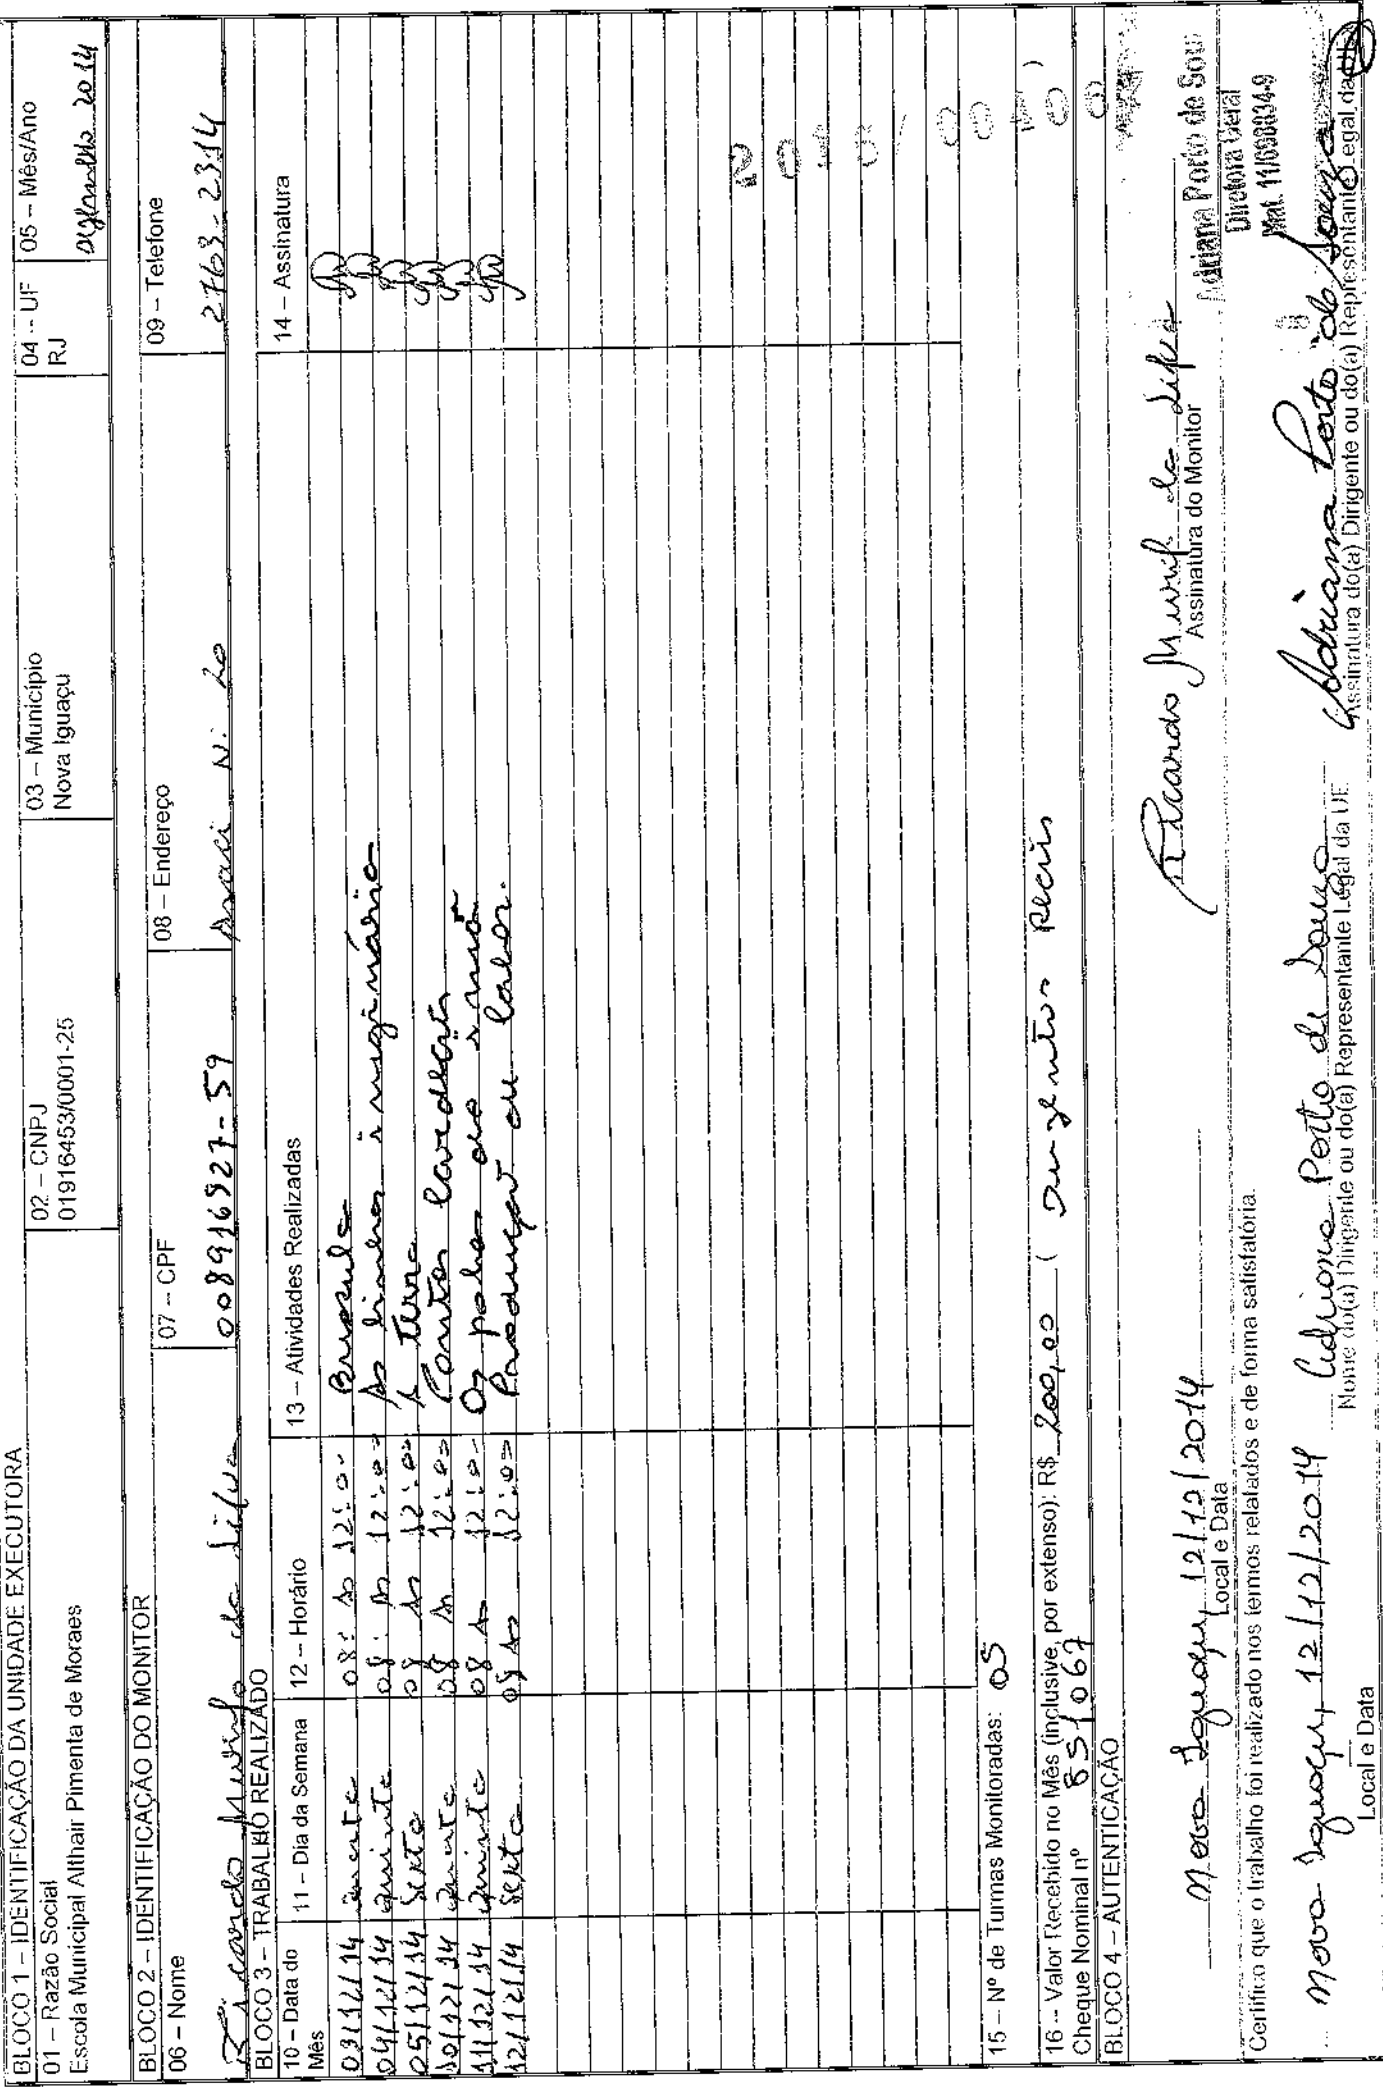 BLOCO 1 – IDENTIFICAÇÃO DA UNIDADE EXECUTORA
01 – Razão Social
Escola Municipal Althair Pimenta de Moraes
02 – CNPJ
01916453/0001-25
03 – Município
Nova Iguaçu
04 – UF
RJ
05 – Mês/Ano
2014
BLOCO 2 – IDENTIFICAÇÃO DO MONITOR
06 – Nome
Ricardo Murilo da Silva
07 – CPF
008916927-59
08 – Endereço
Araci N: 20
09 – Telefone
2763-2314
BLOCO 3 – TRABALHO REALIZADO
10 – Data do Mês
11 – Dia da Semana
12 – Horário
13 – Atividades Realizadas
14 – Assinatura
03/12/14 quarta 08: às 12:00
04/12/14 quinta 08: às 12:00 As linhas imaginária
05/12/14 Sexta 08 às 12:00 A Terra
10/12/14 quarta 08 às 12:00 Pontos Cardeais
11/12/14 quinta 08 às 12:00 Os polos
12/12/14 sexta 08 às 12:00 Produção
15 – Nº de Turmas Monitoradas: 05
16 – Valor Recebido no Mês (inclusive, por extenso): R$ 200,00 ( Duzentos Reais
)
Cheque Nominal nº 851067
BLOCO 4 – AUTENTICAÇÃO
Nova Iguaçu, 12/12/2014
Local e Data
Ricardo Murilo da Silva
Assinatura do Monitor
Adriana Porto de Sou
Diretora Geral
Mat. 11/698034-9
Certifico que o trabalho foi realizado nos termos relatados e de forma satisfatória.
Nova Iguaçu, 12/12/2014
Local e Data
Adriana Porto de Souza
Nome do(a) Dirigente ou do(a) Representante Legal da UE
Adriana Porto de Souza
Assinatura do(a) Dirigente ou do(a) Representante Legal da